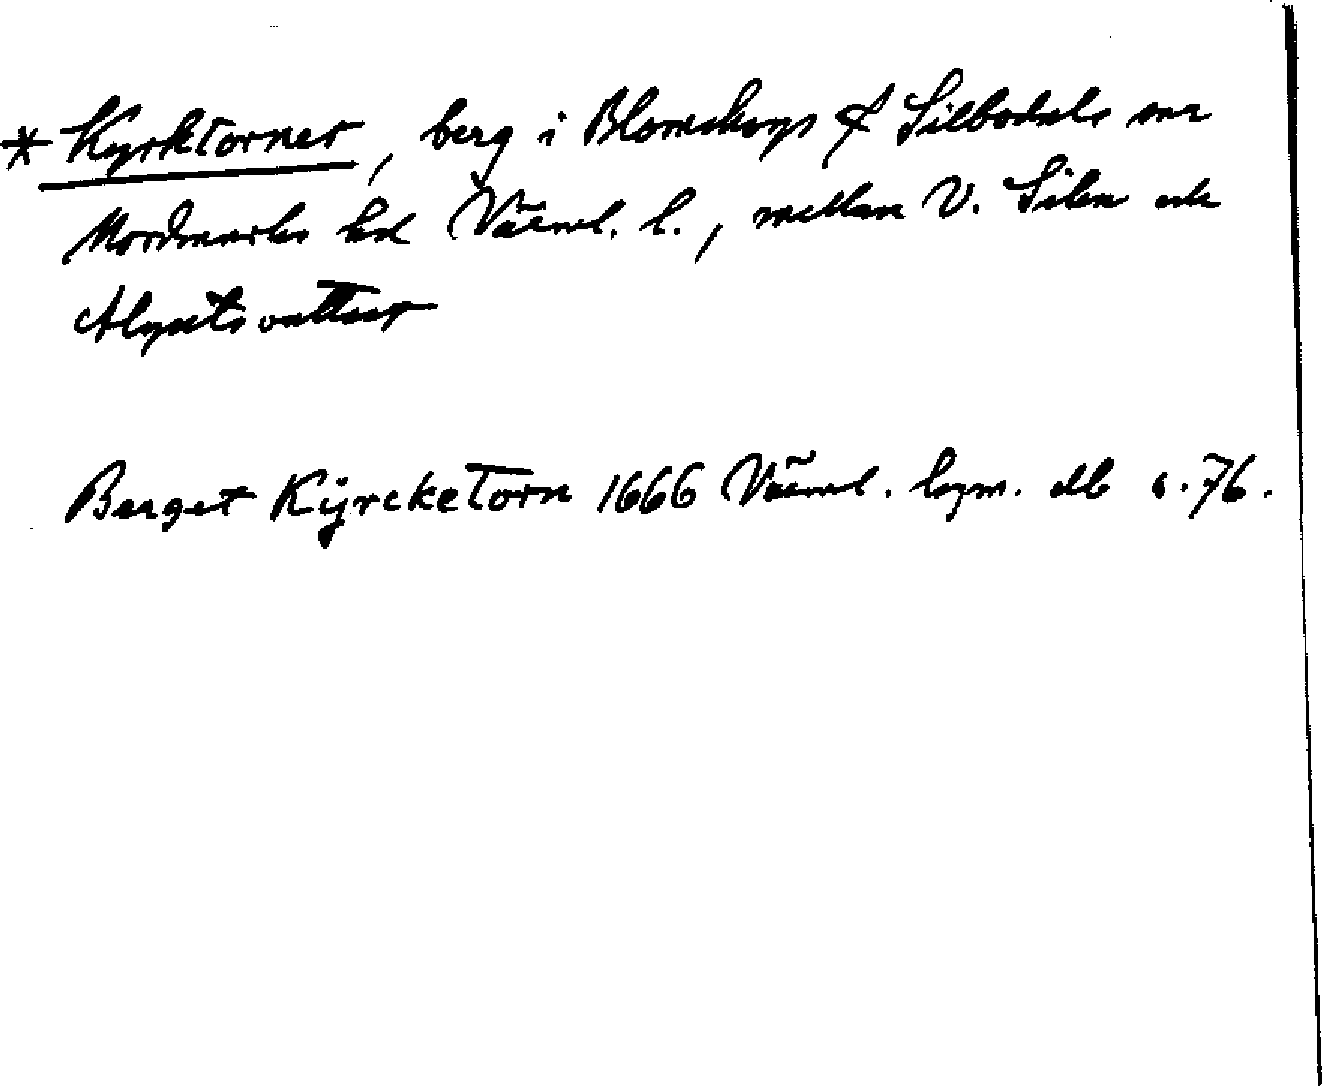 * Kyrktornet, berg i Blomskogs & Silbodals snr
Nordmarks hd Värml. l., mellan V. Silen och
Berget Kÿrcketorn 1666 Värml. lapm. db s. 76.